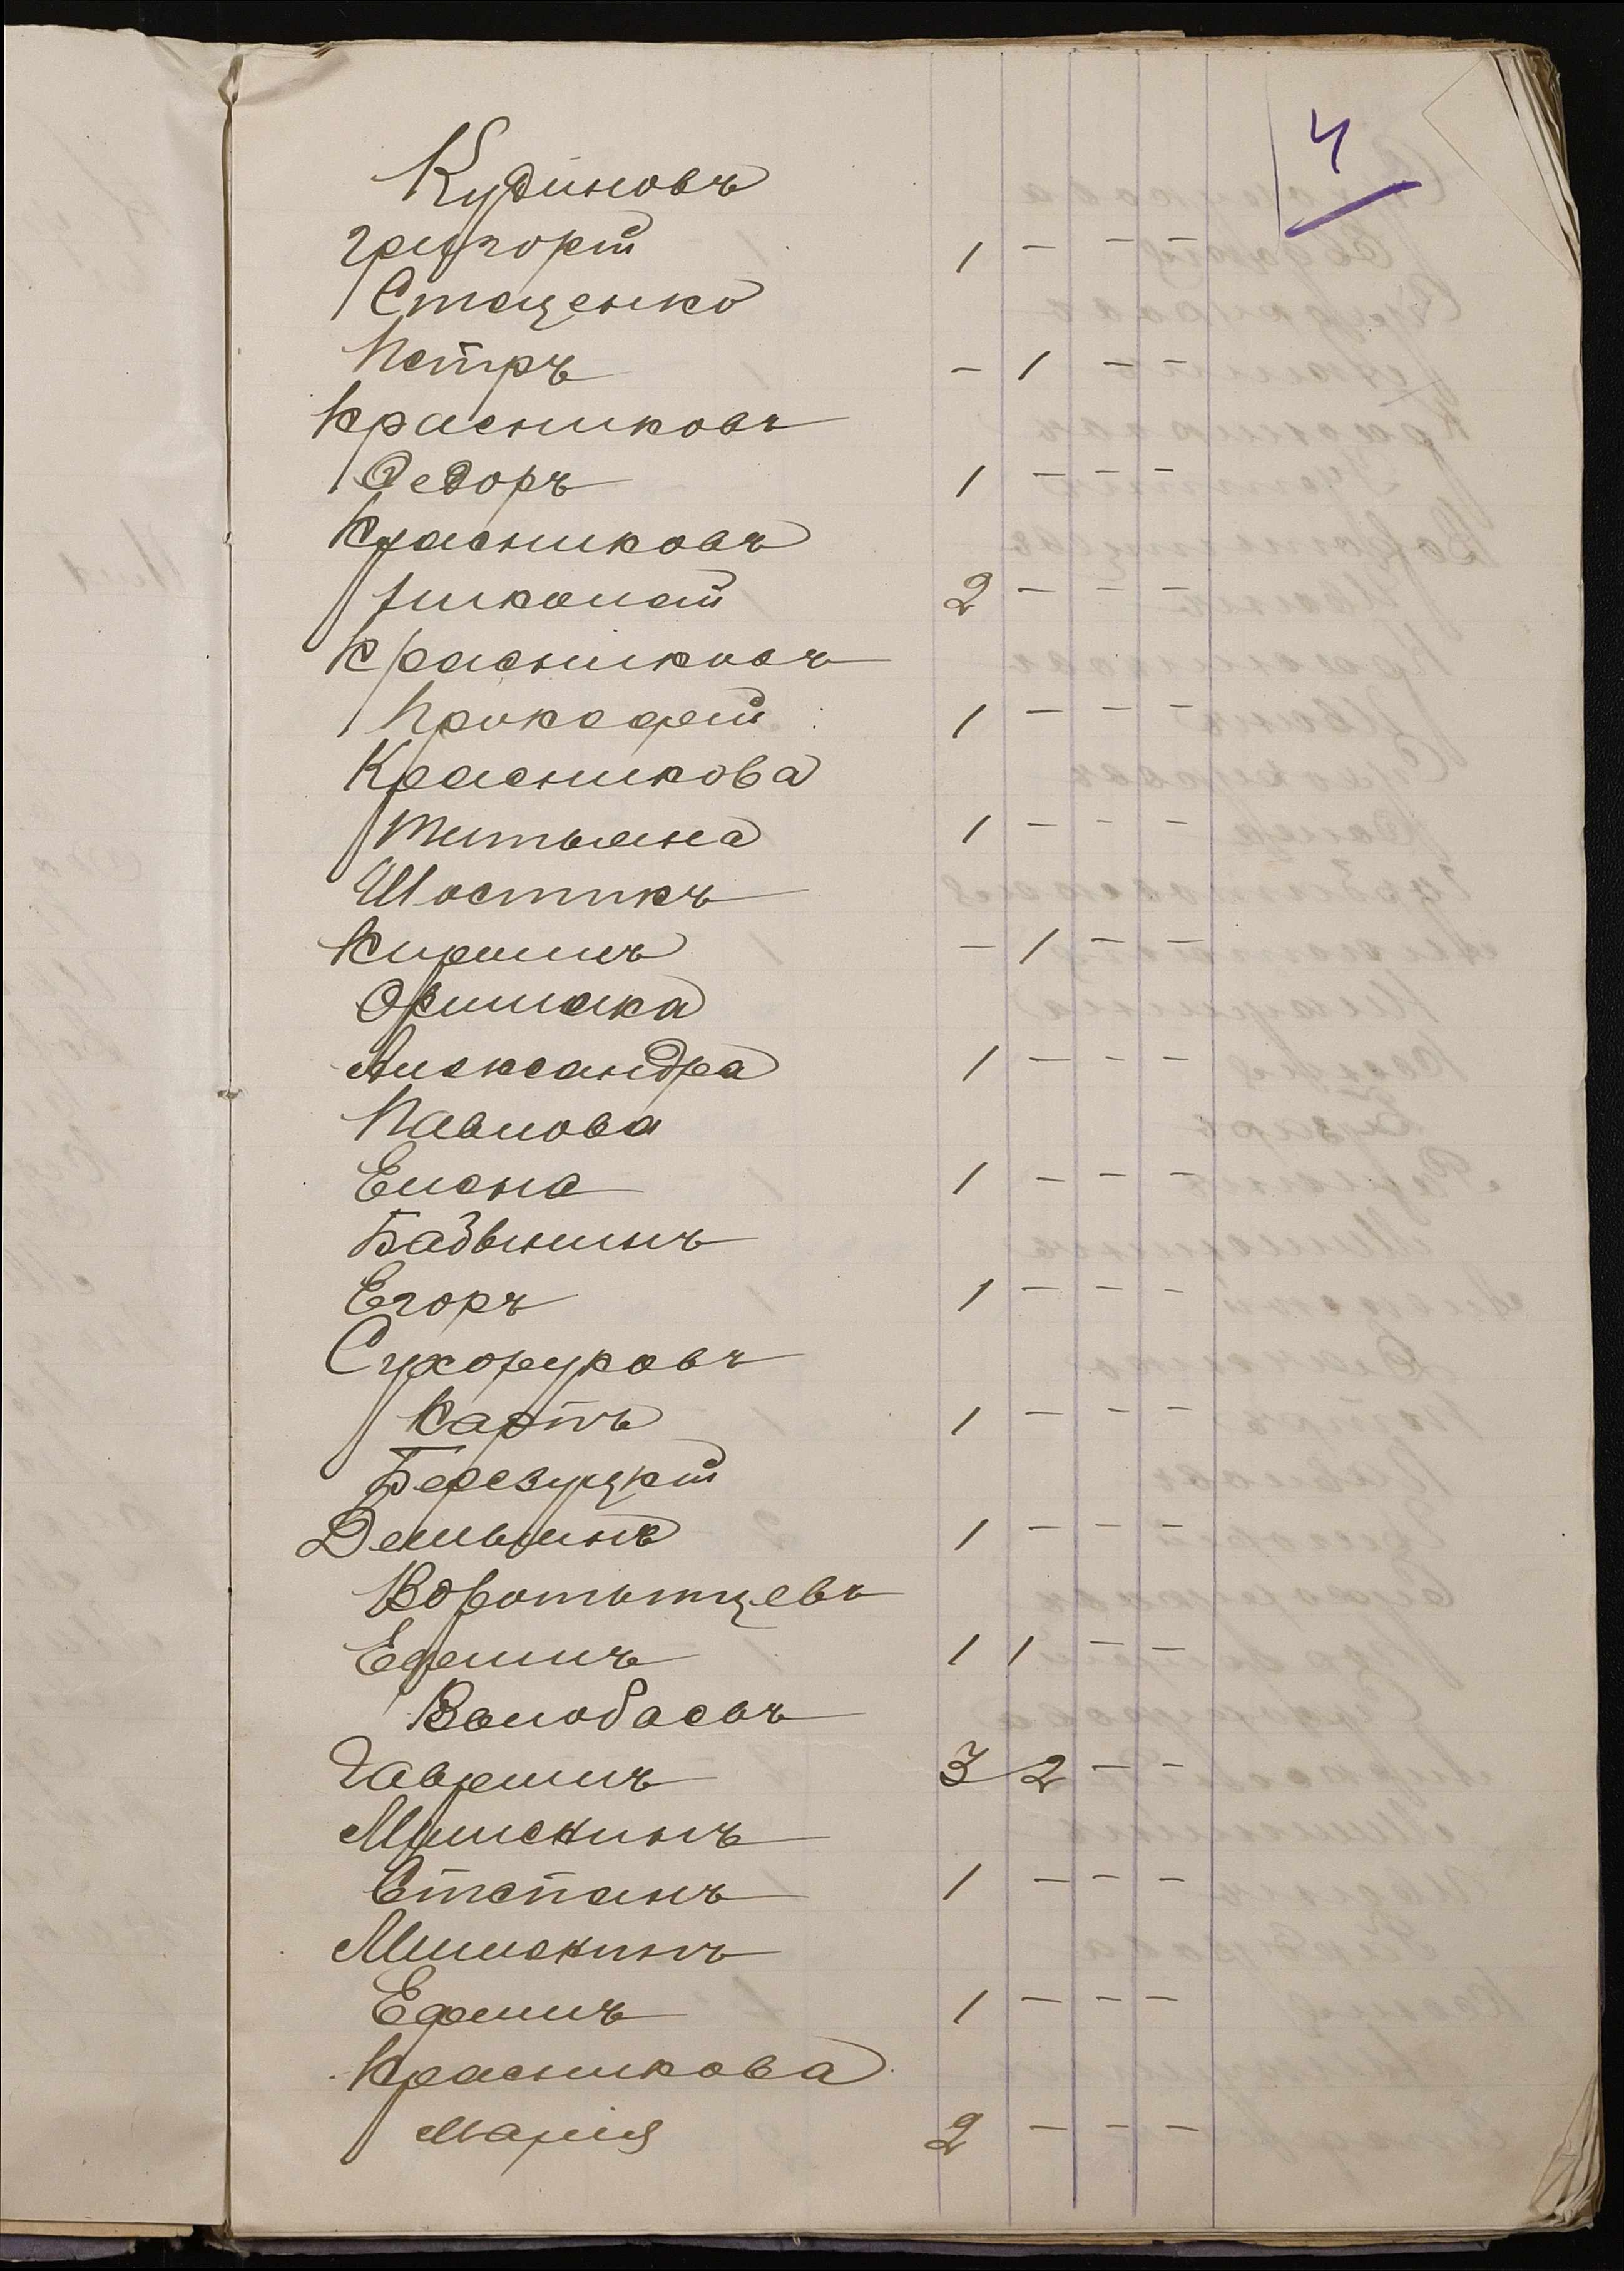 4
Кудиновъ
Григорій 1 - - -
Стаценко
Петръ - 1 - -
Красниковъ
Федоръ 1 - - -
Красниковъ
Николай 2 - - -
Красниковъ
Прокофій 1 - - -
Красникова
Татьяна 1 - - -
Шостикъ
Кирилъ - 1 - -
Александра 1 - - -
Павлова
Елена 1 - - -
Егоръ 1 - - -
Сухоруковъ
Карпъ 1 - - -
Березуцкій
Демьянъ 1 - - -
Воротынцевъ
Ефимъ 1 1 - -
Волобаевъ
Гаврилъ 3 2 - -
Степанъ 1 - - -
Ефимъ 1 - - -
Красникова
Марія 2 - - -